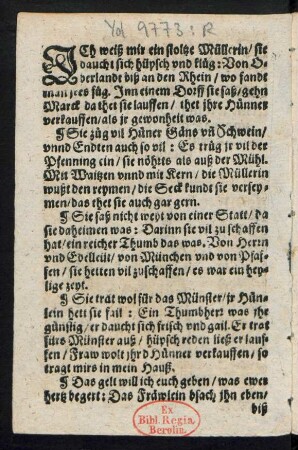 Yd 9773:R
ICh weiß mir ein stoltze Müllerin/ sie
daucht sich hüpsch vnd klüg: Von O-
derlandt biß an den Rhein/ wo fandt
man jres füg. Inn einem Dorff sie saß/ gehn
Marck da thet sie lauffen/ thet jhre Hünner
verkauffen/ als jr gewonheit was.
¶ Sie züg vil Hüner Gäns vñ Schwein/
vnnd Endten auch so vil: Es trüg jr vil der
Pfenning ein/ sie nöhrts als auß der Mühl.
Mit Waitzen vnnd mit Kern/ die Müllerin
wußt den reymen/ die Seck kundt sie versey-
men/ das thet sie auch gar gern.
¶ Sie saß nicht weyt von einer Statt/ da
sie daheimen was: Darinn sie vil zu schaffen
hat/ ein reicher Thumb das was. Von Herrn
vnd Edelleüt/ von München vnd von Pfaf-
fen/ sie hetten vil zuschaffen/ es war ein hey-
lige zeyt.
¶ Sie trat wol für das Münster/ jr Hün-
lein hett sie fail: Ein Thumbherr was jhr
günstig/ er daucht sich frisch vnd gail. Er trat
fürs Münster auß/ hüpsch reden ließ er lauf-
fen/ Fraw wolt jhr d Hünner verkauffen/ so
tragt mirs in mein Hauß.
¶ Das gelt will ich euch geben/ was ewer
hertz begert: Das Fräwlein bsach jhn eben/
biß
Ex
Bibl. Regia
Berolin.